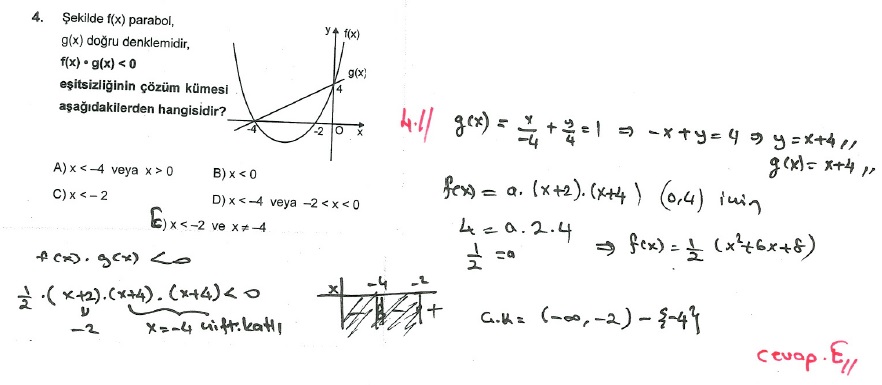 4. Şekilde f(x) parabol,
g(x) doğru denklemidir,
f(x) • g(x) < 0
eşitsizliğinin çözüm kümesi
aşağıdakilerden hangisidir?
y
f(x)
g(x)
4
-4
-2
O
x
A) x < -4 veya x > 0
B) x < 0
C) x < -2
D) x < -4 veya -2 < x < 0
E) x < -2 ve x ≠ -4
f(x) . g(x) < 0
1/2 . (x+2).(x+4).(x+4) < 0
-2
x=-4 çift.katlı
x -4 -2
- - +
4.//
g(x) = x/-4 + y/4 = 1 ⇒ -x+y=4 ⇒ y=x+4 //
g(x)=x+4 //
f(x) = a.(x+2).(x+4) (0,4) için
4 = a.2.4
1/2 = a ⇒ f(x) = 1/2 (x²+6x+8)
Ç.K = (-∞,-2) - {-4}
cevap.E //